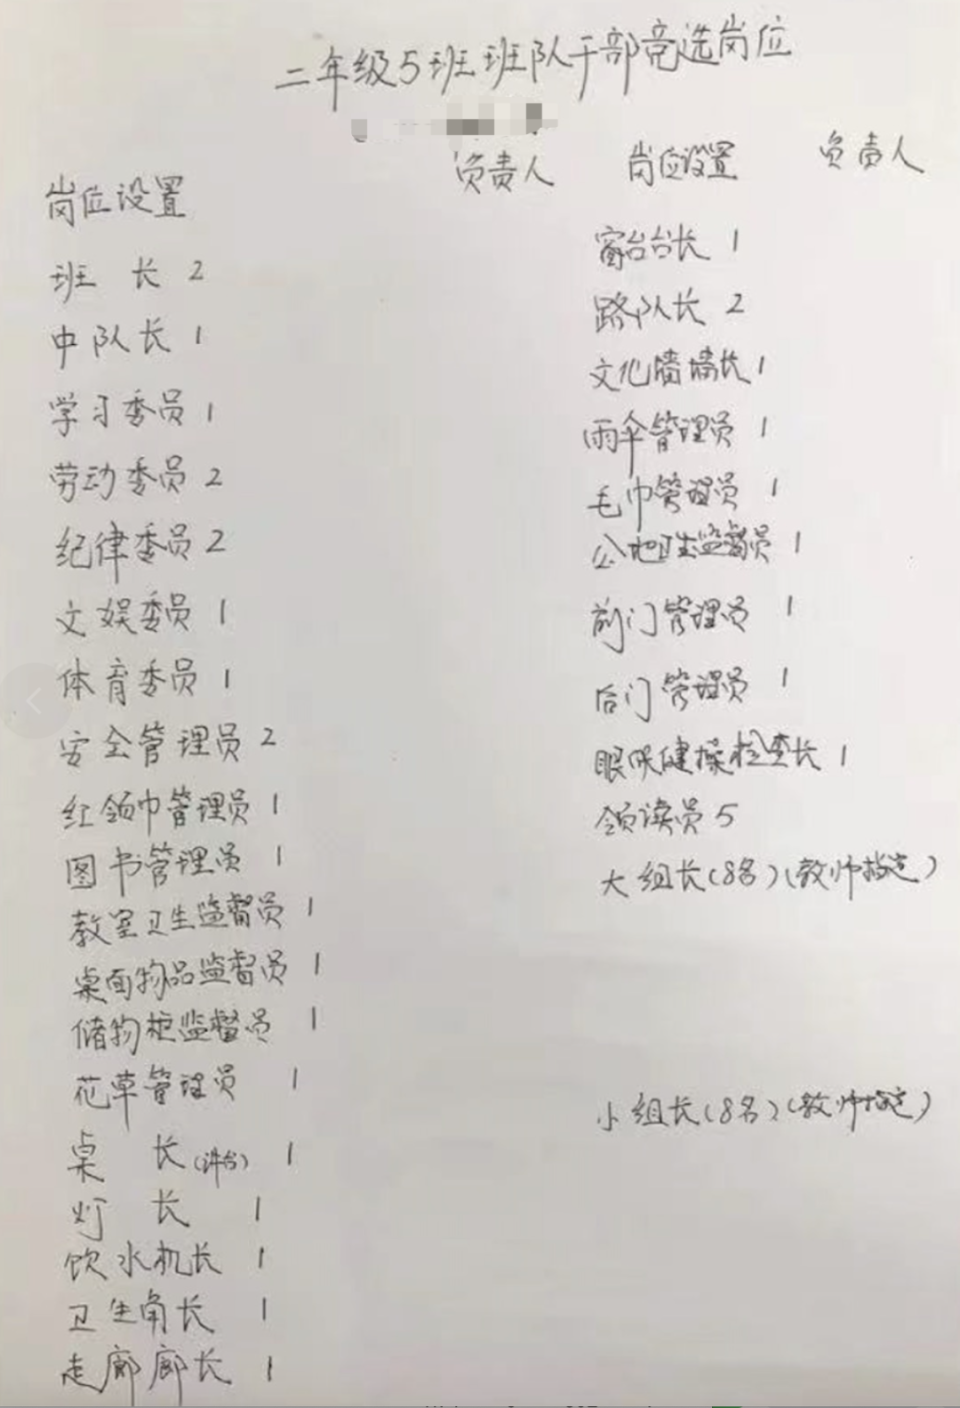 二年级5班班队干部竞选岗位
岗位设置 负责人 岗位设置 负责人
班 长 2
中队长 1
学习委员 1
劳动委员 2
纪律委员 2
文娱委员 1
体育委员 1
安全管理员 2
红领巾管理员 1
图书管理员 1
教室卫生监督员 1
桌面物品监督员 1
储物柜监督员 1
花草管理员 1
桌 长(讲台) 1
灯 长 1
饮水机长 1
卫生角长 1
走廊廊长 1
窗台台长 1
路队长 2
文化墙墙长 1
雨伞管理员 1
毛巾管理员 1
公地卫生监督员 1
前门管理员 1
后门管理员 1
眼保健操检查长 1
领读员 5
大组长(8名)(教师指定)
小组长(8名)(教师指定)